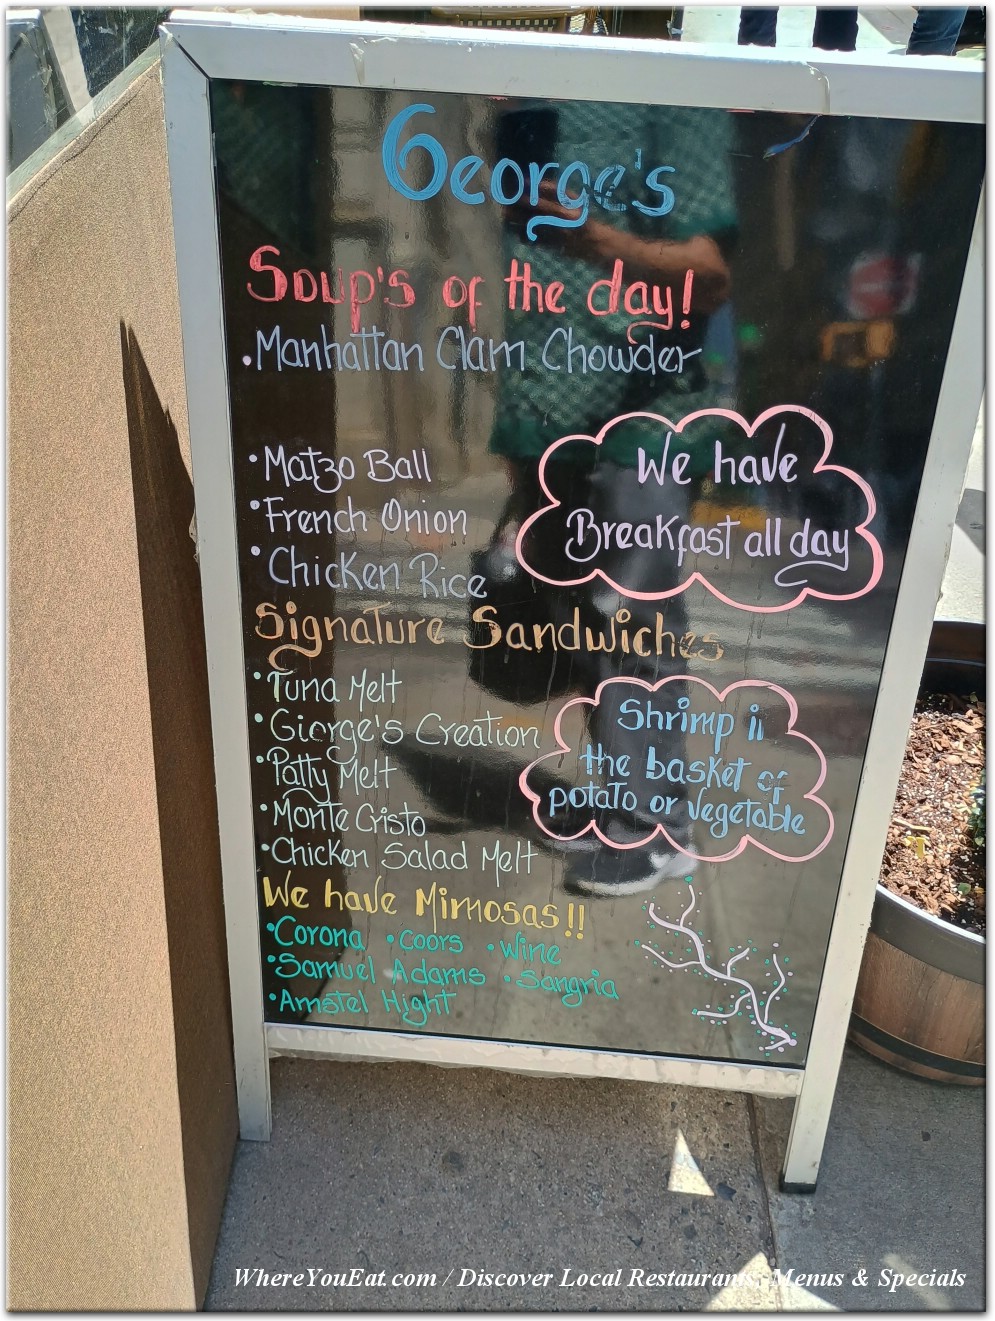 George's
Soup's of the day!
• Manhattan Clam Chowder
• Matzo Ball
• French Onion
• Chicken Rice
We have
Breakfast all day
Signature Sandwiches
• Tuna Melt
• Giorge's Creation
• Patty Melt
• Monte Cristo
• Chicken Salad Melt
Shrimp in
the basket of
potato or vegetable
We have Mimosas!!
• Corona • Coors • Wine
• Samuel Adams • Sangria
• Amstel Hight
WhereYouEat.com / Discover Local Restaurants, Menus & Specials